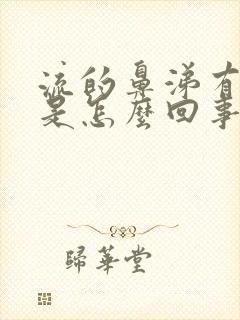 流的鼻涕有
是怎麼回事
歸華堂